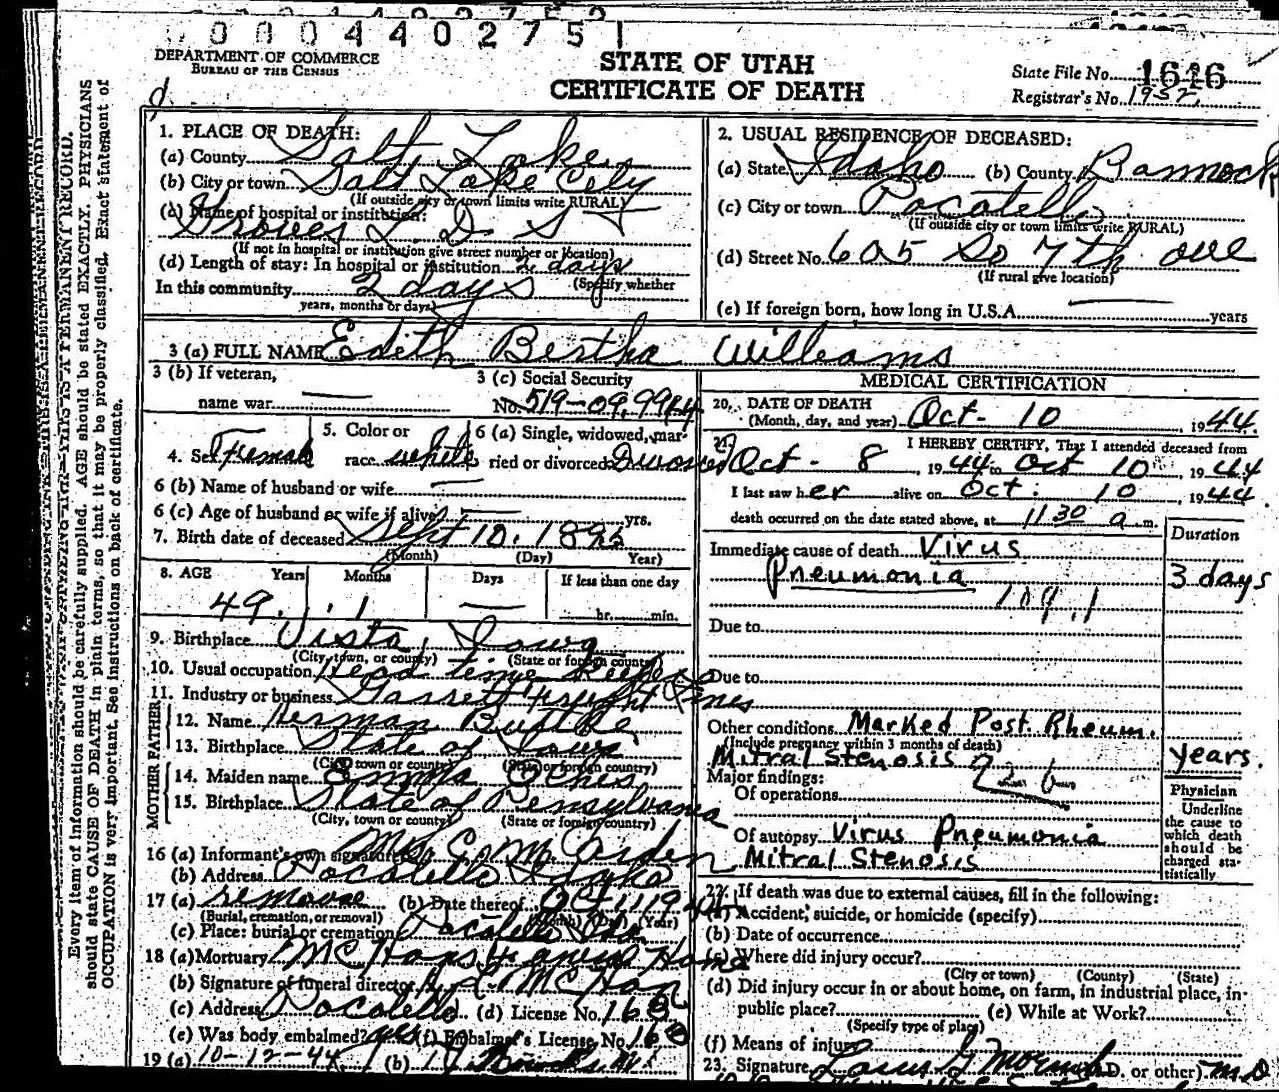 0 0 0 4 4 0 2 7 5 1
DEPARTMENT OF COMMERCE
BUREAU OF THE CENSUS
STATE OF UTAH
CERTIFICATE OF DEATH
State File No. 1646
Registrar's No. 1952
Every item of information should be carefully supplied. AGE should be stated EXACTLY. PHYSICIANS
should state CAUSE OF DEATH in plain terms, so that it may be properly classified. Exact statement of
OCCUPATION is very important. See instructions on back of certificate.
1. PLACE OF DEATH:
(a) County Salt Lake
(b) City or town Salt Lake City
(If outside city or town limits write RURAL)
(c) Name of hospital or institution:
Groves L. D. S
(If not in hospital or institution give street number or location)
(d) Length of stay: In hospital or institution 2 days
(Specify whether
In this community 2 days
years, months or days)
2. USUAL RESIDENCE OF DECEASED:
(a) State Idaho (b) County Bannock
(c) City or town Pocatello
(If outside city or town limits write RURAL)
(d) Street No. 605 So 7th ave
(If rural give location)
(e) If foreign born, how long in U.S.A. years
3 (a) FULL NAME Edith Bertha Williams
3 (b) If veteran,
name war
3 (c) Social Security
No. 519-09.9914
4. Sex Female
5. Color or
race white
6 (a) Single, widowed, mar-
ried or divorced Divorced
6 (b) Name of husband or wife
6 (c) Age of husband or wife if alive yrs.
7. Birth date of deceased Sept 10. 1895
(Month) (Day) Year)
8. AGE Years Months Days If less than one day
49. 1 hr. min.
9. Birthplace Vista, Iowa
(City, town, or county) (State or foreign country)
10. Usual occupation Head time Keeper
11. Industry or business Garrett Freight Lines
FATHER
12. Name Herman
13. Birthplace State of Iowa
(City, town or county) (State or foreign country)
MOTHER
14. Maiden name Emma
15. Birthplace State of Pensylvania
(City, town or county) (State or foreign country)
16 (a) Informant's own signature Mrs. E. M. Arden
(b) Address Pocatello Idaho
17 (a) removal (b) Date thereof Oct 11 1944
(Burial, cremation, or removal) (Month) (Day) (Year)
(c) Place: burial or cremation Pocatello Ida
18 (a) Mortuary McHans Funeral Home
(b) Signature of funeral director McHan
(c) Address Pocatello (d) License No.
(e) Was body embalmed? yes (f) Embalmer's License No.
19 (a) 10-12-44 (b)
MEDICAL CERTIFICATION
20. DATE OF DEATH
(Month, day, and year) Oct- 10, 1944.
21. I HEREBY CERTIFY, That I attended deceased from
Oct- 8, 1944 to Oct 10, 1944
I last saw her alive on Oct. 10, 1944
death occurred on the date stated above, at 11 30 a m.
Duration
Immediate cause of death Virus
Pneumonia 3 days
109.1
Due to
Due to
Other conditions Marked Post. Rheum.
(Include pregnancy within 3 months of death)
Mitral Stenosis years.
92 b
Major findings:
Of operations
Of autopsy Virus Pneumonia
Mitral Stenosis
Physician
Underline
the cause to
which death
should be
charged sta-
tistically
22. If death was due to external causes, fill in the following:
(a) Accident, suicide, or homicide (specify)
(b) Date of occurrence
(c) Where did injury occur?
(City or town) (County) (State)
(d) Did injury occur in or about home, on farm, in industrial place, in-
public place? (e) While at Work?
(Specify type of place)
(f) Means of injury
23. Signature Louis G. (M.D. or other) M.D